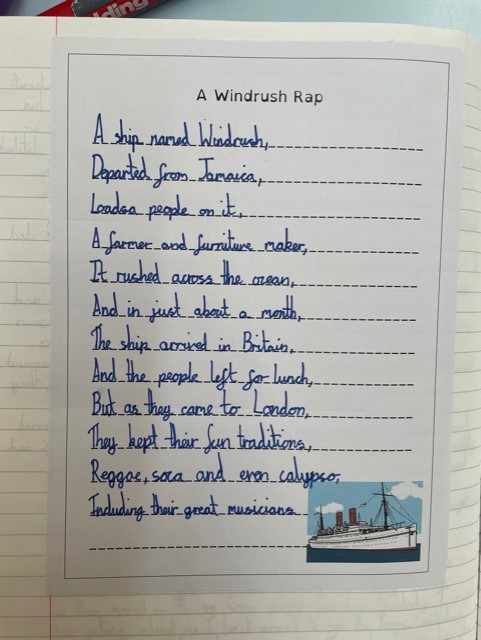 lding
A Windrush Rap
A ship named Windrush,
Departed from Jamaica,
Loadsa people on it,
A farmer and furniture maker,
It rushed across the ocean,
And in just about a month,
The ship arrived in Britain,
And the people left for lunch,
But as they came to London,
They kept their fun traditions,
Reggae, soca and even calypso,
Including their great musicians